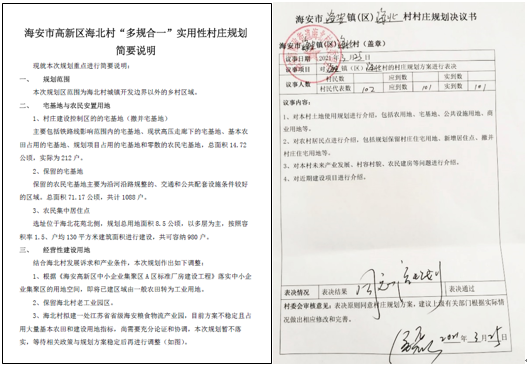 海安市高新区海北村“多规合一”实用性村庄规划
简要说明
现就本次规划重点进行简要说明：
一、 规划范围
本次规划区范围为海北村城镇开发边界以外的乡村区域。
二、 宅基地与农民安置用地
1、村庄建设控制区的的宅基地（搬并宅基地）
主要包括铁路线影响范围内的宅基地、现状高压走廊下的宅基地、基本农
田占用的宅基地、规划项目占用的宅基地和零散的农民宅基地，总面积 14.72
公顷，实际为 212 户。
2、保留的宅基地
保留的农民宅基地主要为沿河沿路规整的、交通和公共配套设施条件较好
的区域。总面积 71.17 公顷，共计 1088 户。
3、农民集中居住点
选址位于海北花苑北侧，规划总用地面积 8.5 公顷，以多层为主，按照容
积率 1.5、户均 130 平方米建筑面积进行建设，共可容纳 980 户。
三、 经营性建设用地
结合海北村发展诉求和产业条件，本次规划作出如下调整：
1、根据《海安高新区中小企业集聚区 A 区标准厂房建设工程》落实中小企
业集聚区的用地空间，即将已建区域由一般农田转为工业用地。
2、保留海北村老工业园区。
3、海北村拟建一处江苏省省级海安粮食物流产业园，目前方案不稳定且占
用大量基本农田和建设用地指标，尚需要充分论证和协调，本次规划暂不落
实，等待相关政策与规划方案稳定后再进行调整（如图）。
海安市 镇（区）海北 村村庄规划决议书
海安市 镇（区） 村（盖章）
议事日期 2021年3月25日
议事项目 对 镇（区）海北村的村庄规划方案进行表决
议事人数 村民数 应到数 实到数
村民代表数 102 应到数 101 实到数 101
议事内容：
1、对本村土地使用规划进行介绍，包括农用地、宅基地、公共设施用地、商
业用地等。
2、对农村居民点进行介绍，包括规划保留村庄住宅用地、新增居住点、撤并
村庄住宅用地等。
3、对本村未来产业发展、村容村貌、农民建房等问题进行介绍。
4、对近期建设项目进行介绍。
表决情况 表决结果 表决通过
村委会审核意见：表决原则同意村庄规划方案，建议上级有关部门根据实际情
况做出相应修改和完善。
2021年3月25日